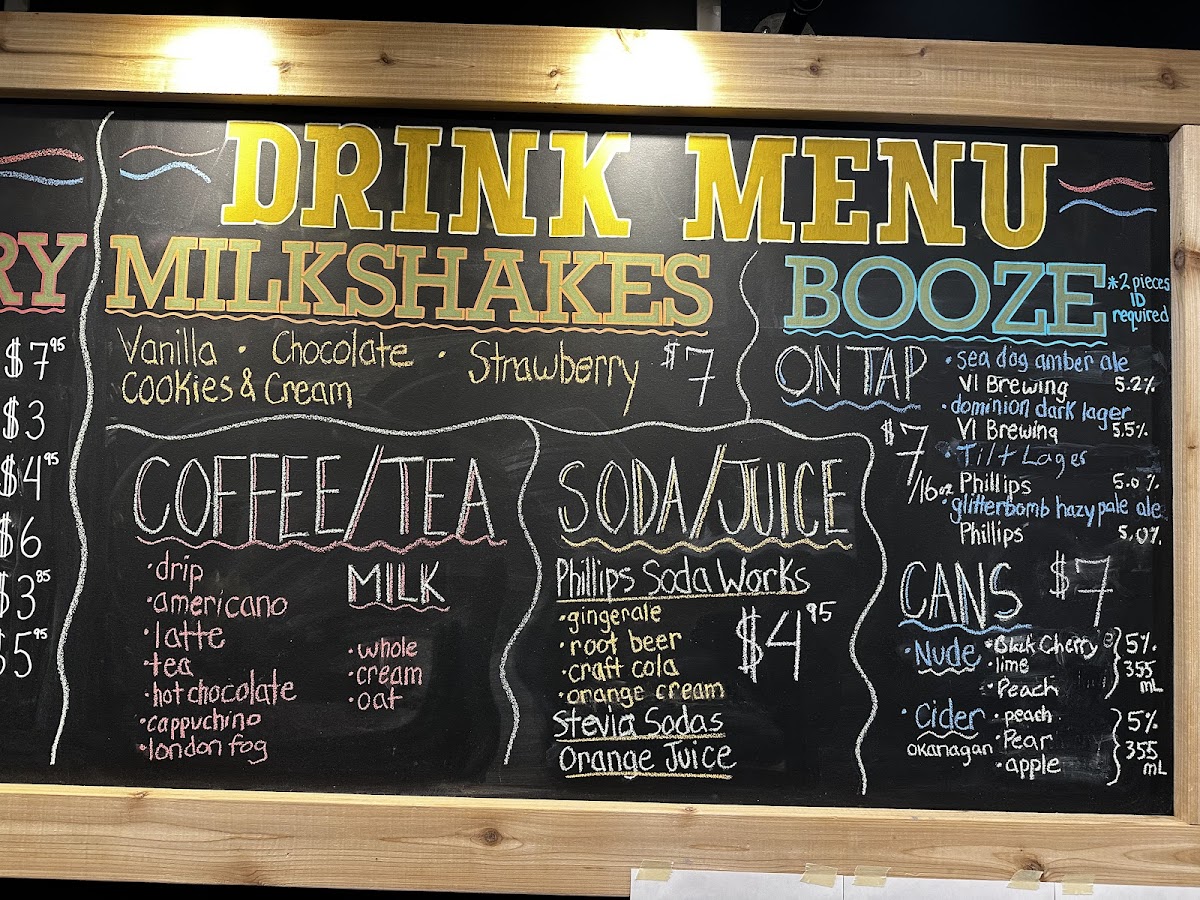 DRINK MENU
RY
$7.95
$3
$4.95
$6
$3.85
$5.95
MILKSHAKES
Vanilla · Chocolate · Strawberry $7
Cookies & Cream
COFFEE/TEA
· drip
· americano
· latte
· tea
· hot chocolate
· cappuchino
· london fog
MILK
· whole
· cream
· oat
SODA/JUICE
Phillips Soda Works
· gingerale
· root beer
· craft cola
· orange cream
$4.95
Stevia Sodas
Orange Juice
BOOZE
*2 pieces
ID
required
ON TAP
$7
/16oz
· sea dog amber ale
VI Brewing 5.2%
· dominion dark lager
VI Brewing 5.5%
· Tilt Lager
Phillips 5.0%
· glitterbomb hazy pale ale
Phillips 5.0%
CANS $7
· Nude · Black Cherry
· lime
· Peach
5%
355
mL
· Cider · peach
okanagan · Pear
· apple
5%
355
mL